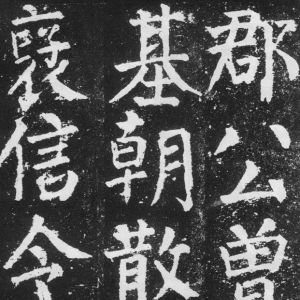 郡公曾
基朝散
褒信令